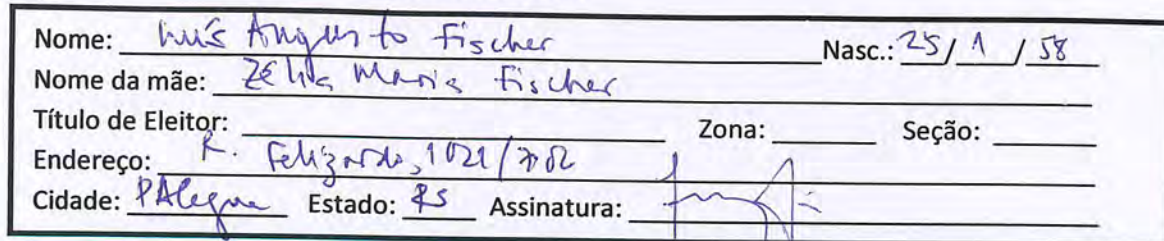 Nome: Luís Augusto Fischer Nasc.: 25/ 1 / 58
Nome da mãe: Zélia Maria Fischer
Título de Eleitor: Zona: Seção:
Endereço: R. Felizardo, 1021/702
Cidade: PAlegre Estado: RS Assinatura: